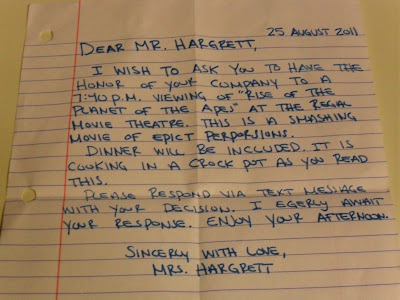 25 AUGUST 2011
DEAR MR. HARGRETT,
I WISH TO ASK YOU TO HAVE THE
HONOR OF YOUR COMPANY TO A
7:40 P.M. VIEWING OF "RISE OF THE
PLANET OF THE APES" AT THE REGAL
MOVIE THEATRE. THIS IS A SMASHING
MOVIE OF EPICT PERPORSIONS.
DINNER WILL BE INCLUDED. IT IS
COOKING IN A CROCK POT AS YOU READ
THIS.
PLEASE RESPOND VIA TEXT MESSAGE
WITH YOUR DECISION. I EGERLY AWAIT
YOUR RESPONSE. ENJOY YOUR AFTERNOON.
SINCERLY WITH LOVE,
MRS. HARGRETT